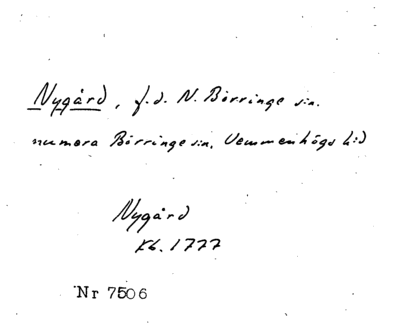 Nygård, f.d. N. Börringe sn.
numera Börringe sn, Vemmenhögs hd
Nygård
Kb. 1777
Nr 7506